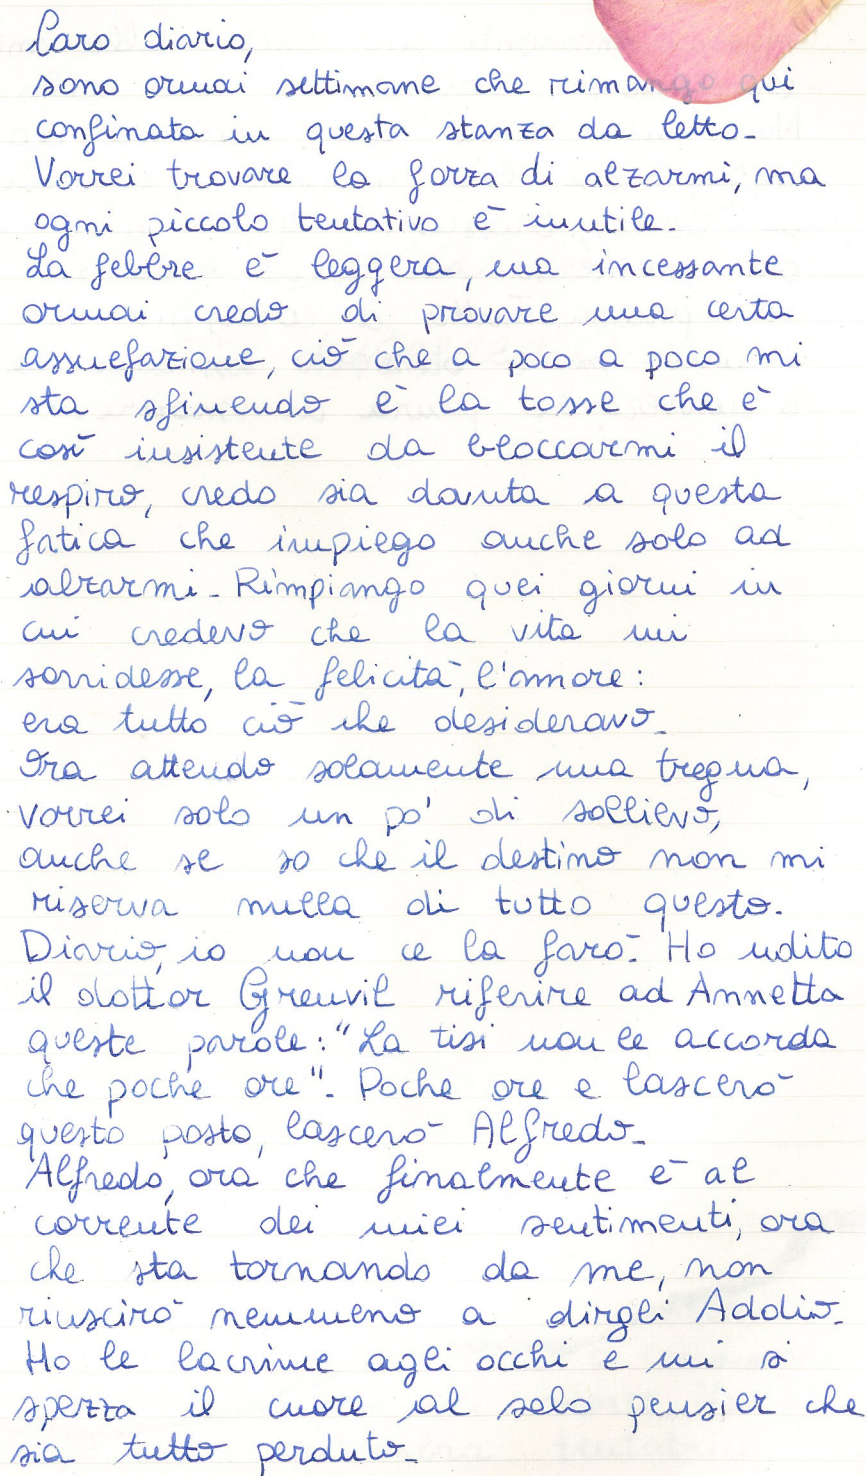 Caro diario,
sono ormai settimane che rimango qui
confinata in questa stanza da letto.
Vorrei trovare la forza di alzarmi, ma
ogni piccolo tentativo è inutile.
La febbre è leggera, ma incessante
ormai credo di provare una certa
assuefazione, ciò che a poco a poco mi
sta sfinendo è la tosse che è
così insistente da bloccarmi il
respiro, credo sia dovuta a questa
fatica che impiego anche solo ad
alzarmi. Rimpiango quei giorni in
cui credevo che la vita mi
sorridesse, la felicità, l'amore:
era tutto ciò che desideravo.
Ora attendo solamente una tregua,
vorrei solo un po' di sollievo,
anche se so che il destino non mi
riserva nulla di tutto questo.
Diario, io non ce la farò. Ho udito
il dottor Grenvil riferire ad Annetta
queste parole: "La tisi non le accorda
che poche ore". Poche ore e lascerò
questo posto, lascerò Alfredo.
Alfredo, ora che finalmente è al
corrente dei miei sentimenti, ora
che sta tornando da me, non
riuscirò nemmeno a dirgli Addio.
Ho le lacrime agli occhi e mi si
spezza il cuore al solo pensier che
sia tutto perduto.